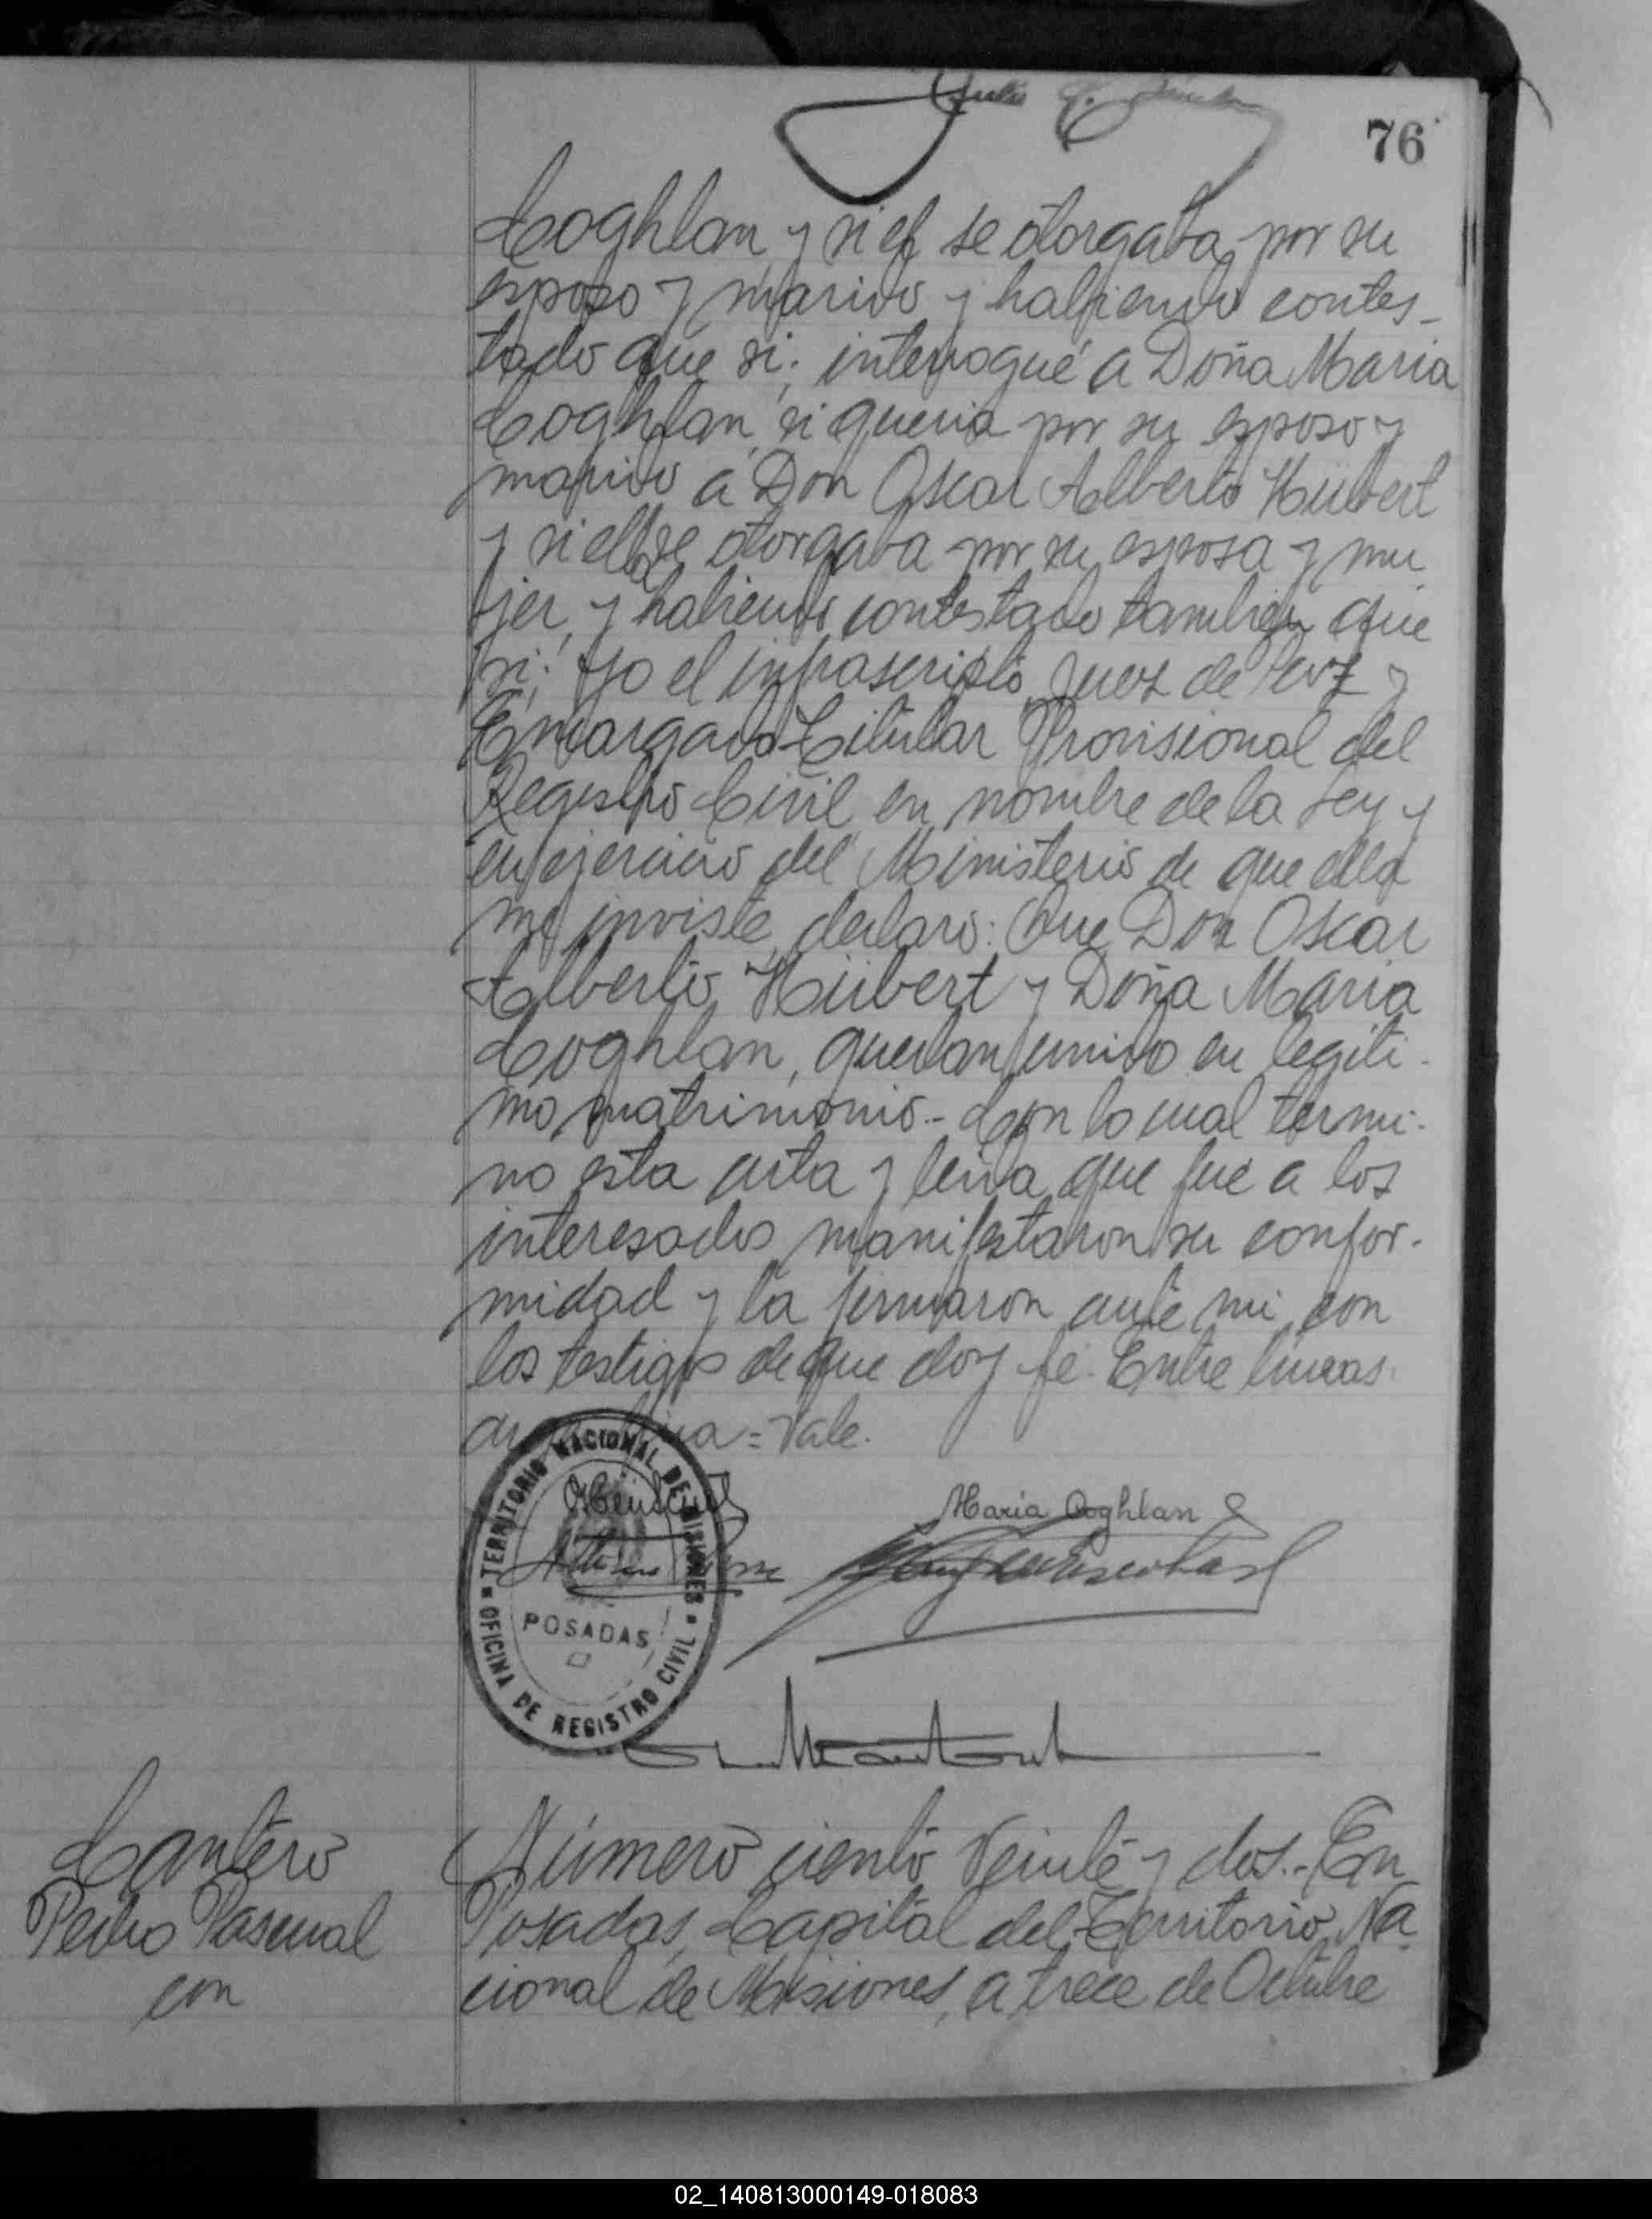 76
Coghlan, y si él se otorgaba por su
esposo y marido y habiendo contes-
tado que si; interrogué a Doña Maria
Coghlan, si queria por su esposo y
marido a Don Oscar Alberto Hübert
y si ella se otorgaba por su esposa y mu
jer, y habiendo contestado tambien que
si; Yo el infrascripto Juez de Paz y
Encargado Titular Provisional del
Registro Civil en nombre de la Ley y
en ejercicio del Ministerio de que ella
me inviste, declaro: Que Don Oscar
Alberto Hübert y Doña Maria
Coghlan, quedan unido en legiti-
mo matrimonio.- Con lo cual termi-
no esta acta y leida que fué a los
interesados manifestaron su confor-
midad y la firmaron ante mi con
los testigos de que doy fé. Entre lineas.
= Vale.
Maria Coghlan
TERRITORIO NACIONAL DE MISIONES
POSADAS
OFICINA DE REGISTRO CIVIL
Cantero
Pedro Pascual
con
Número ciento veinte y dos.- En
Posadas, Capital del Territorio Na
cional de Misiones, a trece de Octubre
02_140813000149-018083